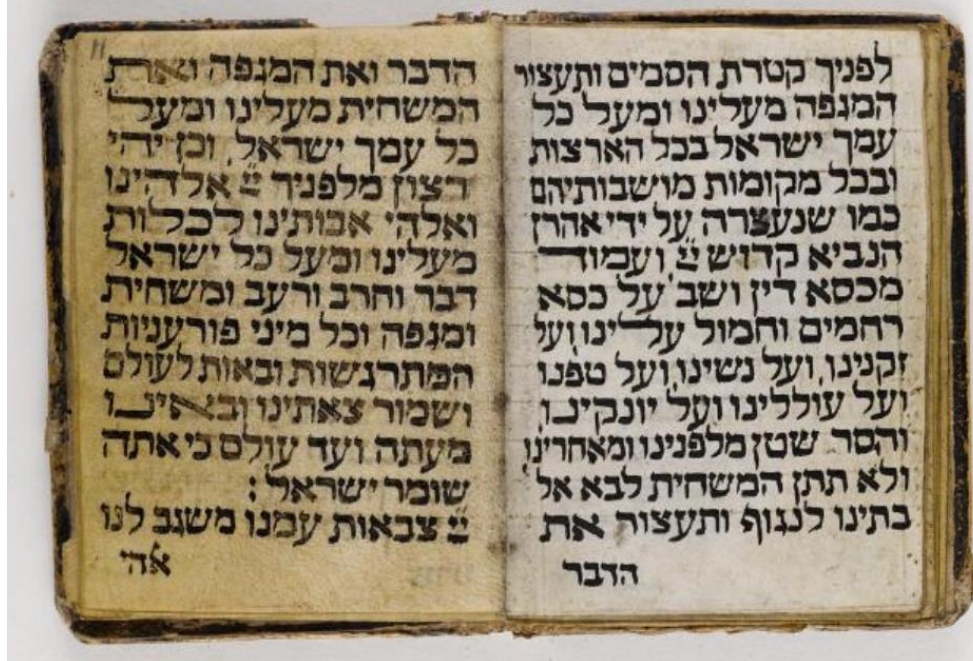 לפניך קטרת הסמים ותעצור
המגפה מעלינו ומעל כל
עמך ישראל בכל הארצות
ובכל מקומות מושבותיהם
כמו שנעצרה על ידי אהרן
הנביא קדוש יי֖ ועמוד
מכסא דין ושב על כסא
רחמים וחמול עלינו ועל
זקנינו ועל נשינו ועל טפנו
ועל עוללינו ועל יונקינו
והסר שטן מלפנינו ומאחרינו
ולא תתן המשחית לבא אל
בתינו לנגוף ותעצור את
הדבר
11
הדבר ואת המגפה ואת
המשחית מעלינו ומעל
כל עמך ישראל, וכן יהי
רצון מלפניך יי אלהינו
ואלהי אבותינו לכלות
מעלינו ומעל כל ישראל
דבר וחרב ורעב ומשחית
ומגפה וכל מיני פורעניות
המתרגשות ובאות לעולם
ושמור צאתינו ובאינו
מעתה ועד עולם כי אתה
שומר ישראל :
יי צבאות עמנו משגב לנו
אהי